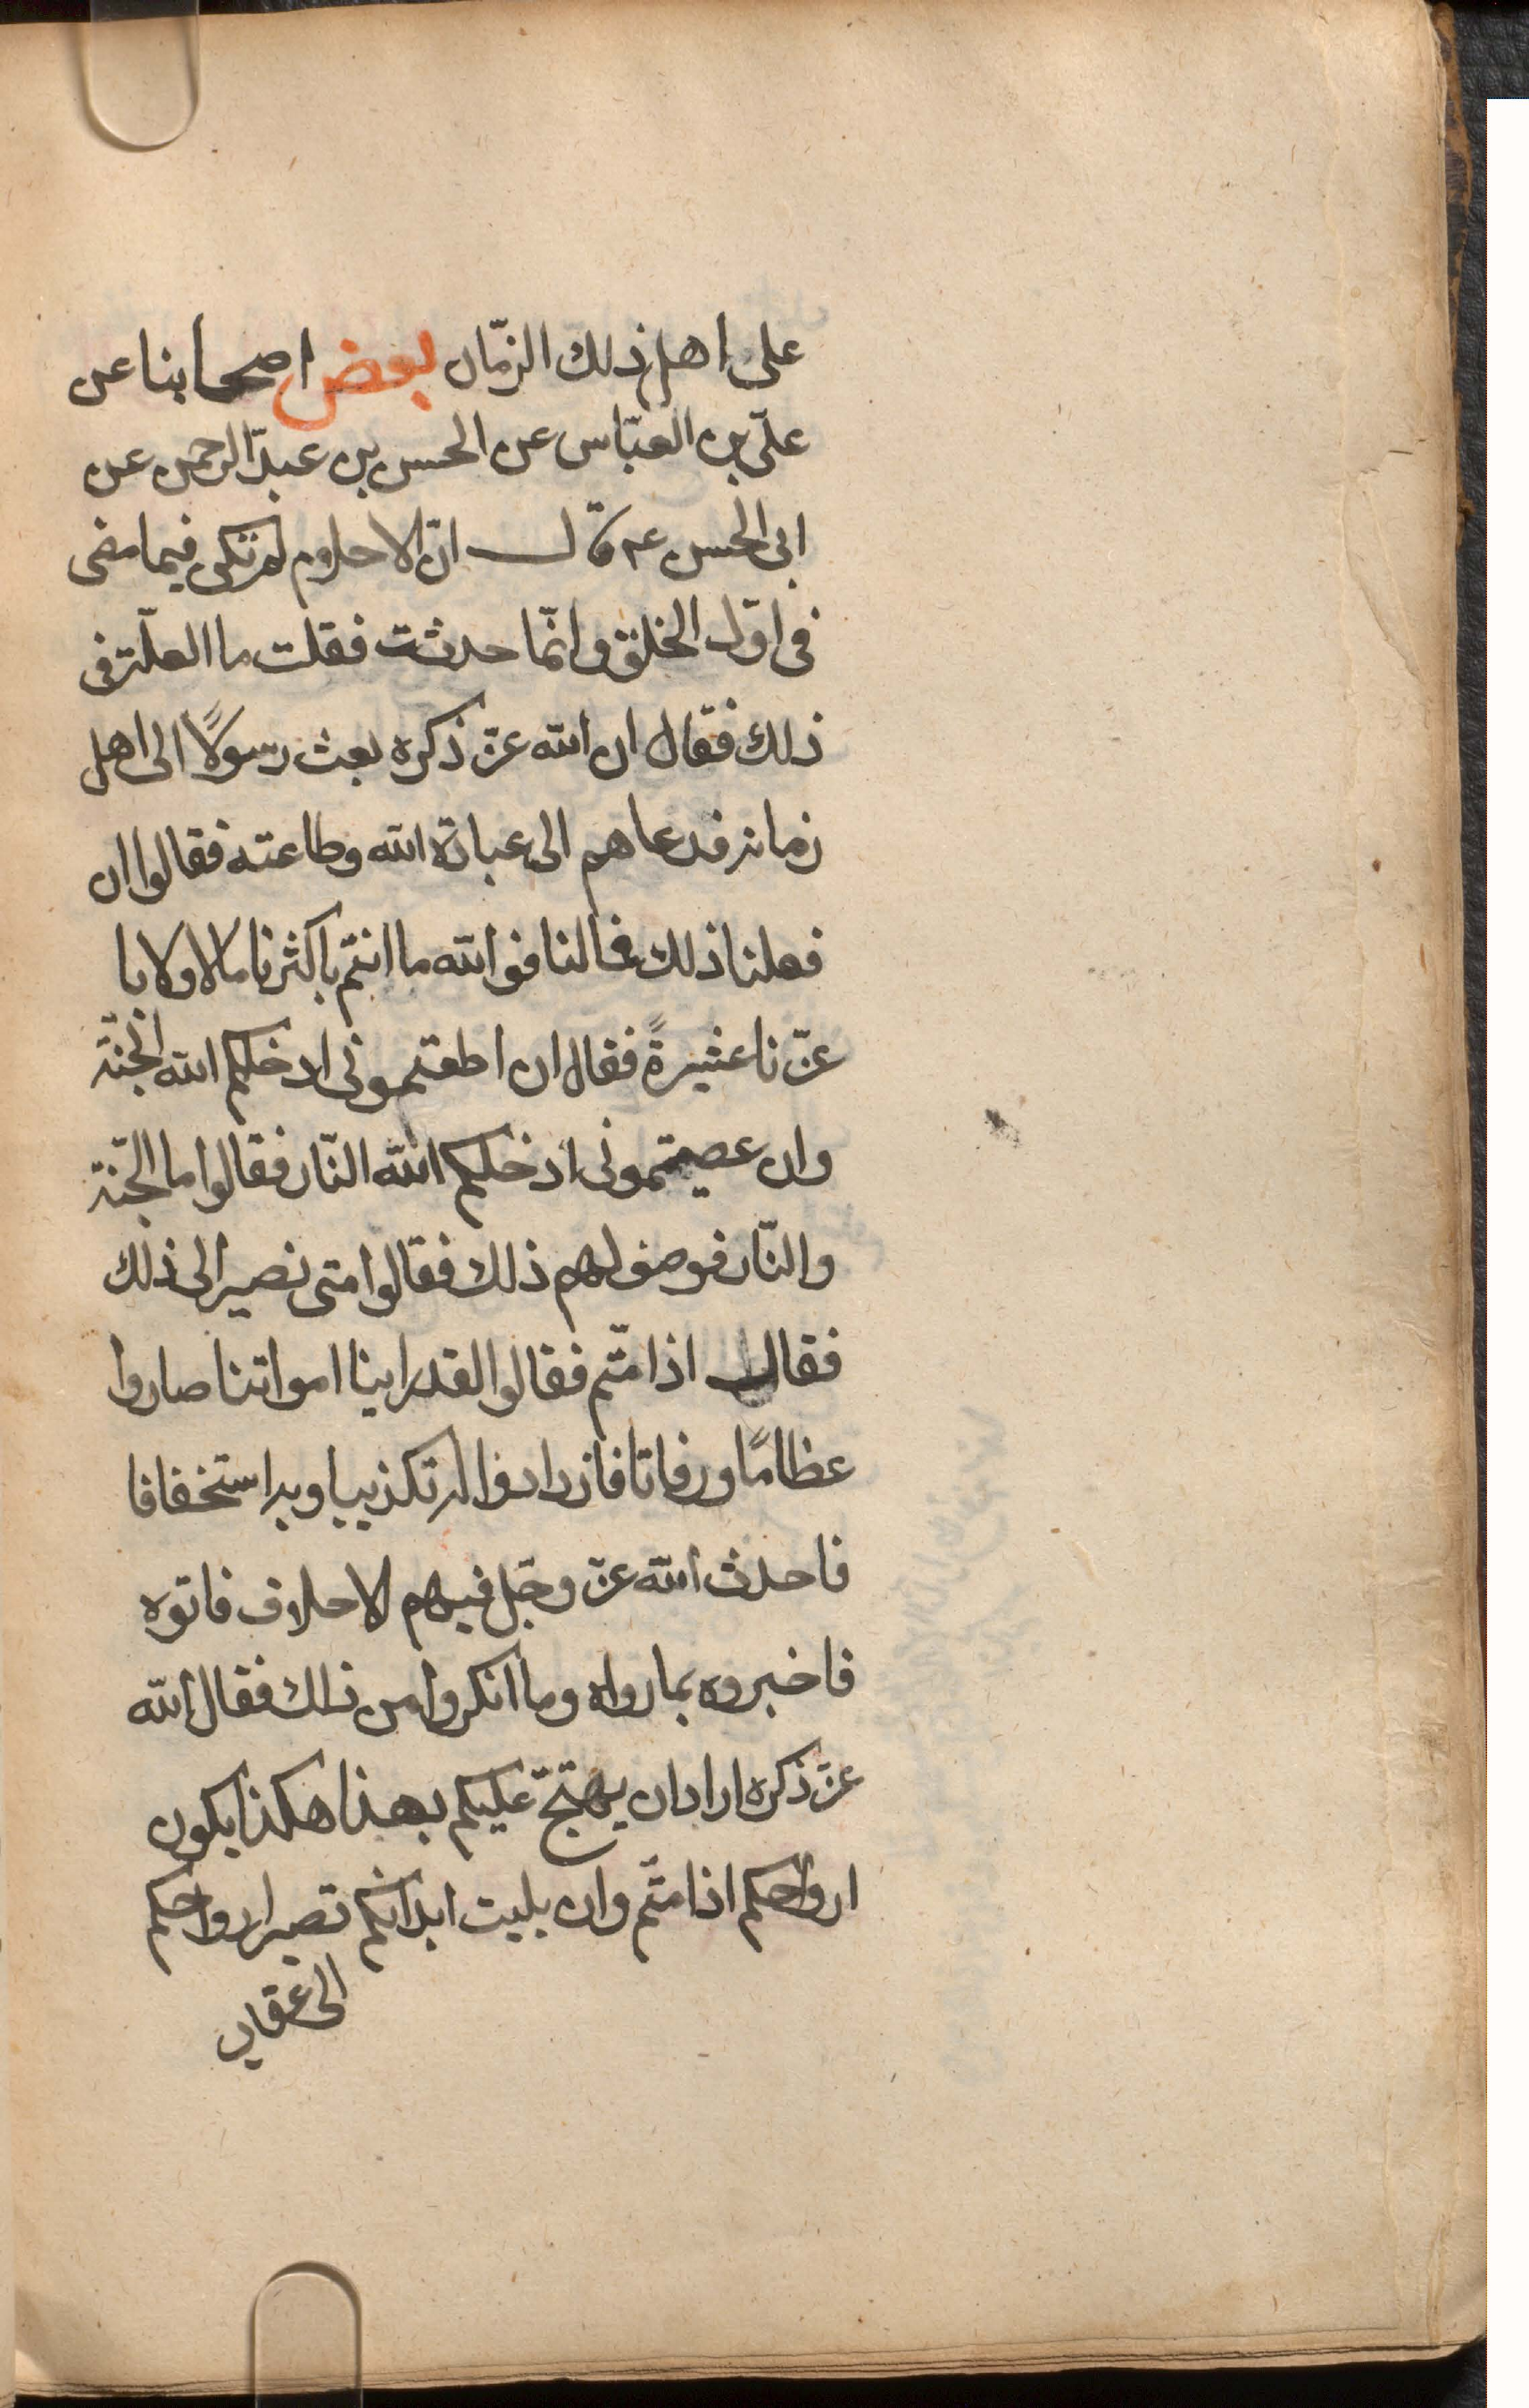 على اهل ذلك الزمّان بعض اصحابنا عن
علّى بن العبّاس عن الحسن بن عبد الرحمن عن
ابى الحسن عم قال انّ الاحلوم لم تكن فيما مضى
فى اوّل الخلق وانّما حدثت فقلت ما العلّة فى
ذلك فقال ان الله عزّ ذكره بعث رسولاً الى اهل
زمانه فدعاهم الى عبادة الله وطاعته فقالوا ان
فعلنا ذلك فما لنا فو الله ما انتم باكثرنا مالا ولا با
عزّنا عشيرةً فقال ان اطعتمونى ادخلكم الله الجنّة
وان عصيتمونى ادخلكم الله النّار فقالوا ما الجنّة
والنّار فوصف لهم ذلك فقالوا متى نصير الى ذلك
فقال اذا متّم فقالوا لقد راينا امواتنا صاروا
عظامًا ورفاتا فازدادوا له تكذيبا وبه استخفافا
فاحدث الله عزّ وجلّ فيهم الاحلام فاتوه
فاخبروه بما راواه وما انكروا من ذلك فقال الله
عزّ ذكره اراد ان يهتجّ عليكم بهذا هكذا يكون
ارواحكم اذا متّم وان بليت ابدانكم تصير ارواحكم
الى عقاب